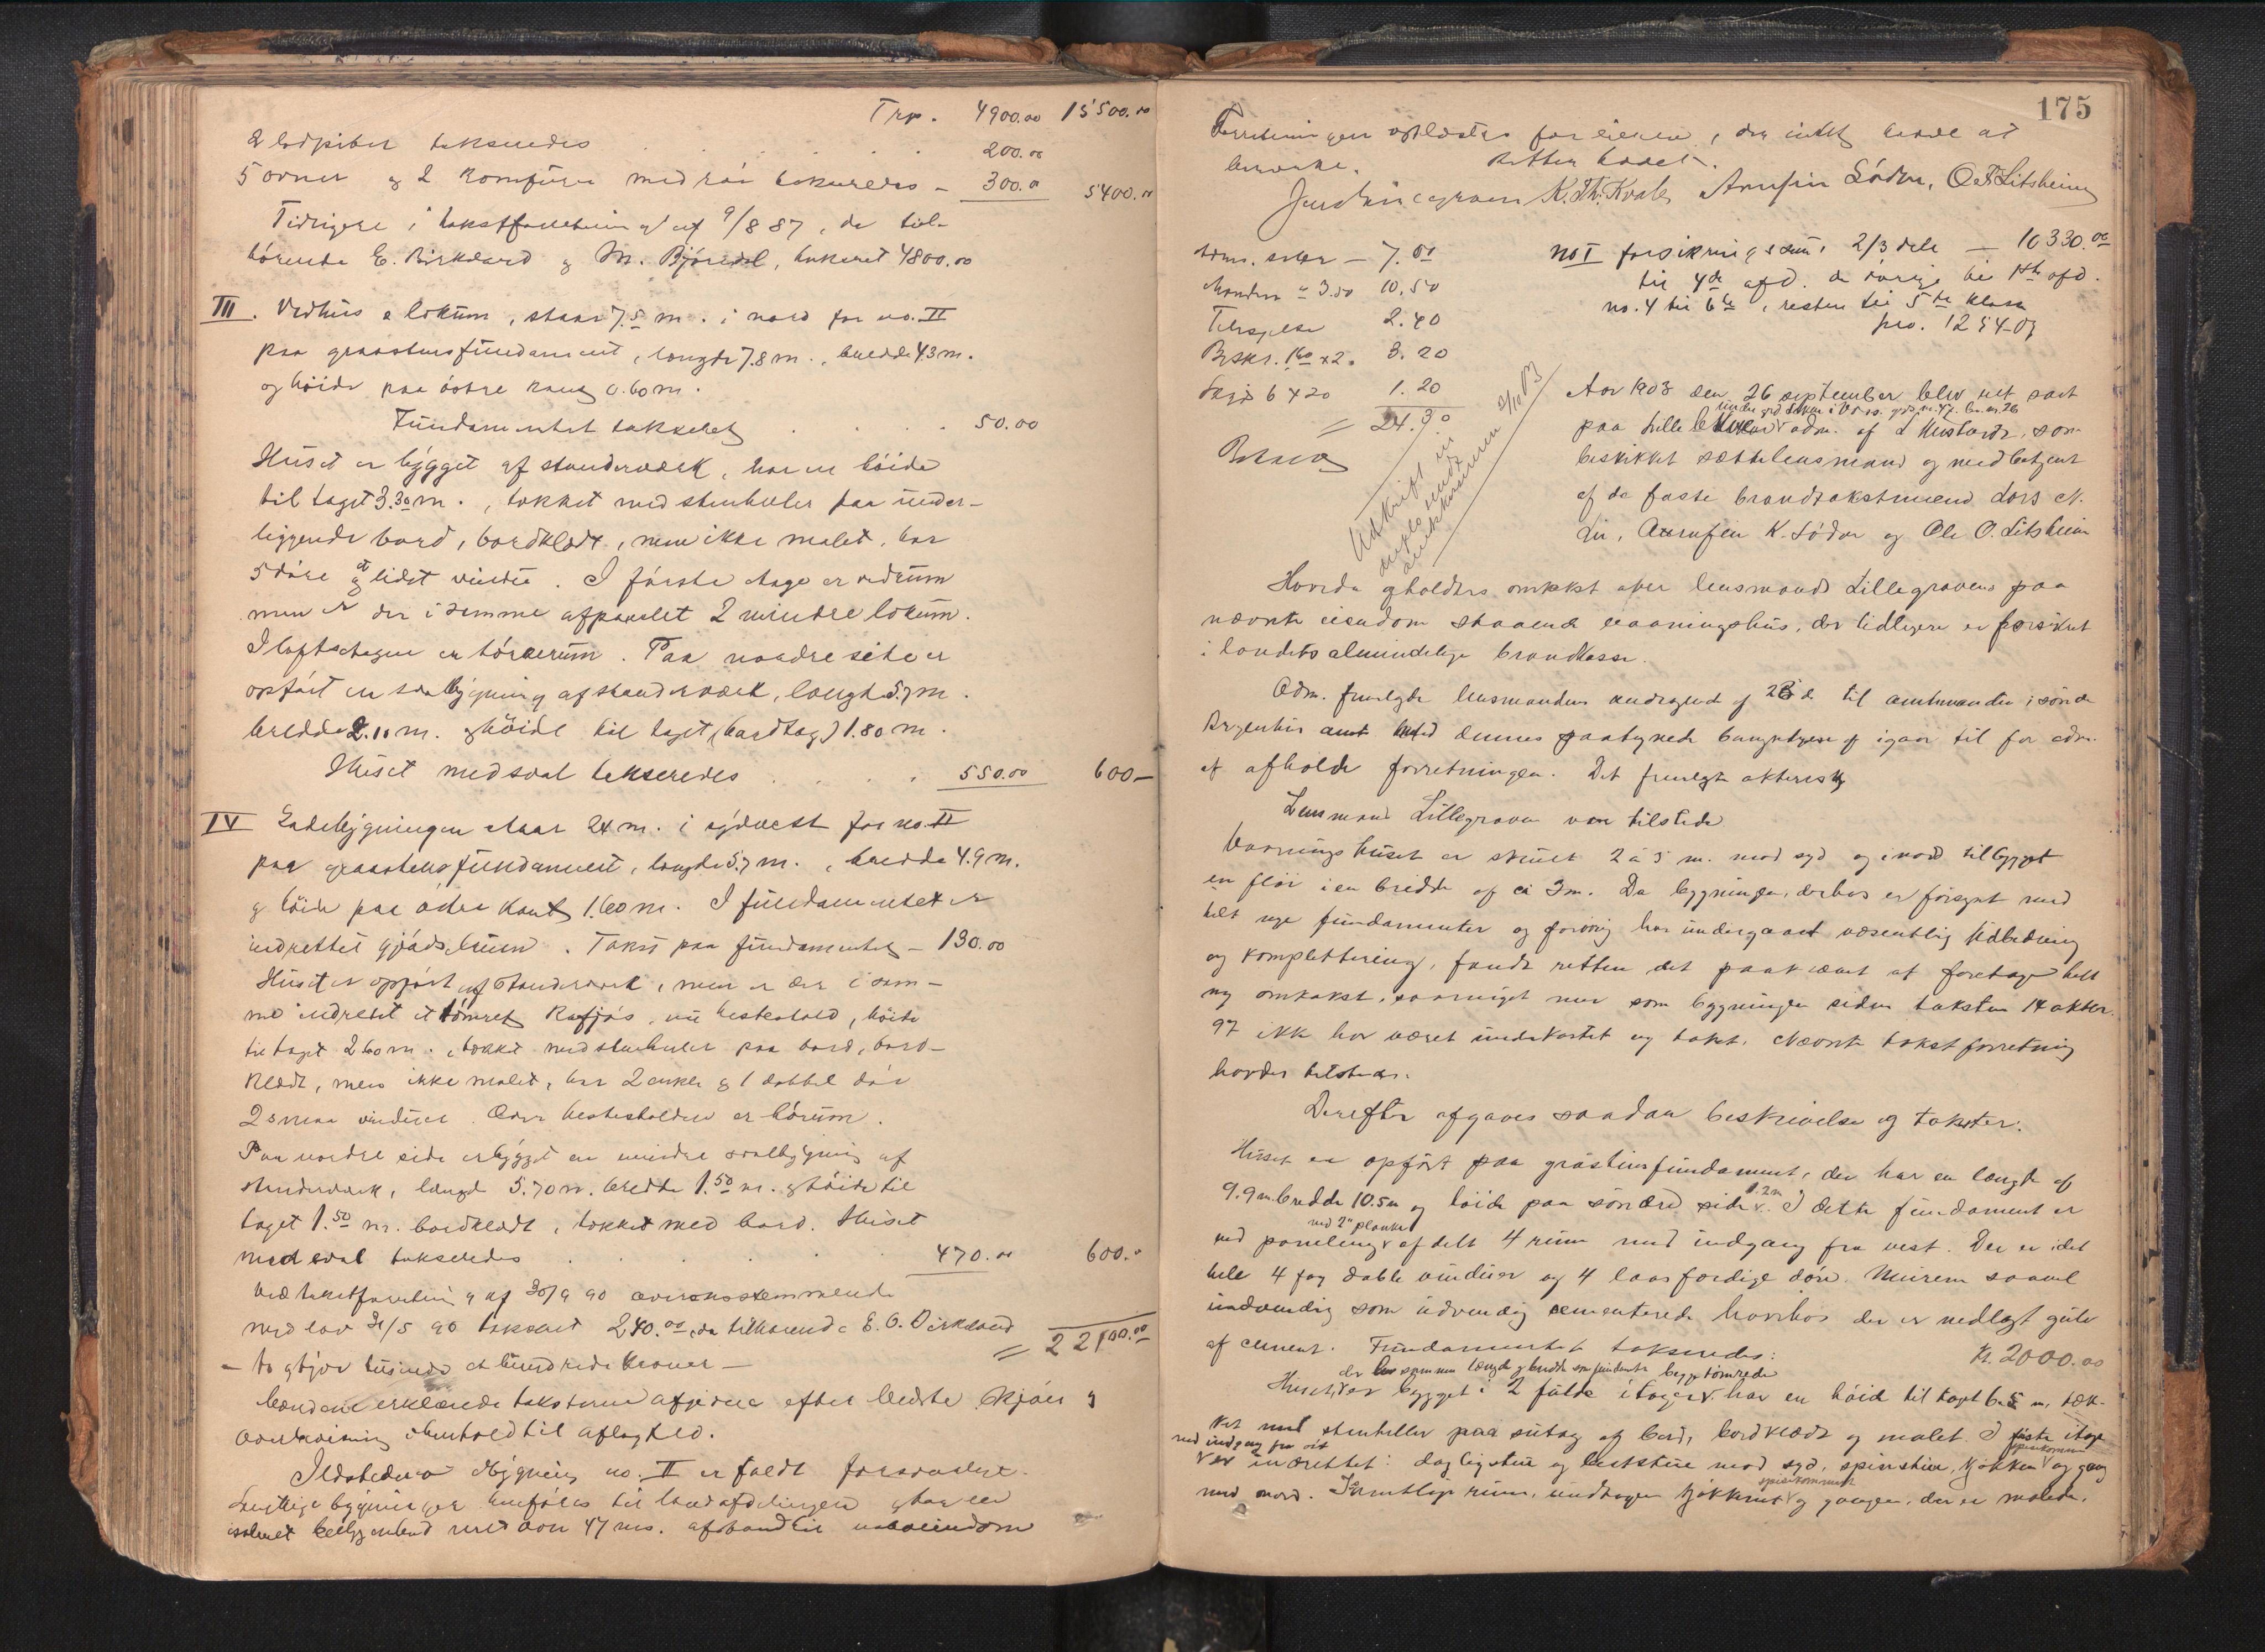 Trp. 4900.00 15500.00
2 ledpiber takseredes . . . . 200.00
5 ovner og 2 komfürer med rör takseredes – 300.00 5400.00
Tidligere i takstforretning af 9/8 87, da til-
hörende E. Birkeland og M. Björedal, takseret 4800.00
III. Vedhüs & lokum, staar 7.5 m. i nord for no. II
paa graastensfündament, længde 7.8 m., bredde 4.3 m.
og höide paa östre kant 0.60 m.
Fündamentet takseret . . . . 50.00
Hüset er bygget af stenderværk, har en höide
til taget 3.30 m., tækket med stenheller paa under-
liggende bord, bordklædt, men ikke malet, har
5 döre og et lidet vindü. I förste etage er vedrüm
men er der i samme afpanelet 2 mindre lokum.
I loftsetagen er törkerüm. Paa nordre side er
opfört en svalbygning af stenderværk, længde 5.7 m.
bredde 2.10 m. og höide til taget (bordtag) 1.80 m.
Hüset med sval takseredes . . . . 550.00 600–
IV Ladebygningen staar 24 m. i sydvest for no. II
paa graastensfündament, længde 5.7 m., bredde 4.9 m.
og höide paa södre kant 1.60 m. I fündamentet er
indrettet gjödselrüm. Takst paa fündamentet – 130.00
Hüset er opfört af stenderværk, men er der i sam-
me indrettet et tömret kufjös, nu hestestald, höide
til taget 2.60 m., tækket med stenheller paa bord, bord-
klædt, men ikke malet, har 2 enkle og 1 dobbel dör
2 smaa vindüer. Over hestestalden er hörüm.
Paa nordre side er bygget en mindre svalbygning af
stenderværk, længde 5.70 m. bredde 1.50 m. og höide til
taget 1.50 m. bordklædt, tækket med bord. Hüset
med sval takseredes . . . . 470.00 600.00
Ved takstforretning af 30/9 90 overensstemmende
med lov 31/5 90 takseret 240.00, da tilhörende E. O. Birkeland
= 22100.00
– to og tyve tüsinde et hündrede kroner –
Mændene erklærede taksterne afgivne efter bedste skjön og
overbevisning i henhold til aflagt ed.
Ildstederne i bygning no. II er fuldt forsvarlige.
Samtlige bygninger henföres til landafdelingen og har en
isoleret beliggenhed med over 47 m. afstand til naboeiendom
175
Forretningen oplæstes for eieren, der intet havde at
bemærke. Retten hævet.
Jens Lillegraven K. Th. Kvale Arnfin Södve, O. O. Litsheim
Lens. salær – 7.00
Mænden á 3.50 10.50
Tilsigelse 2.40
Beskr. 1.60 x 2 = 3.20
Skyds 6 x 20 1.20
= 24.30
Betalt
no I forsikringssum 2/3 dele – 10330.00
til 4de afd. de övrige til 1ste afd.
no. 4 til 6te, resten til 5te klasse
pro. 1254-03
Udskrift er
2/10 03
Aar 1903 den 26 september blev ret sat
under grd. Sækse i Voss, gds. nr. 47, br. nr. 26
paa adm. af L. Mestad, som
beskikket sættelensmand og med betjent
af de faste brandtakstmænd Lars N.
Lie, Arnfin K. Södve og Ole O. Litsheim
Hvorda afholdtes omtakst over lensmand Lillegravens paa
nævnte eiendom staaende vaaningshüs, der tidligere er forsikret
i landets almindelige brandkasse.
Adm. fremlagde lensmandens andragende af 23 d. til amtmanden i söndre
Bergenhüs amt med dennes paategnede bemyndigelse af igaar til for adm.
at afholde forretningen. Det fremlagte akteres.
Lensmand Lillegraven var tilstede
Vaaningshüset er skudt 2 à 3 m. mod syd og i nord tilbygget
en flöi i en bredde af ca 3 m. Da bygningen derhos er forsynet med
helt nye fundamenter og forövrig har undergaaet væsentlig udbedring
og komplettering, fandt retten det paakrævet at foretage helt
ny omtakst, saameget mer som bygningen siden taksten 14 oktbr.
97 ikke har været underkastet ny takst. Nævnte takstforretning
havdes tilstede.
Derefter afgaves saadan beskrivelse og takster.
Hüset er opfört paa gråstensfundament, der har en længde af
9.9 m bredde 10.5 m og höide paa söndre side 1.2 m. I dette fundament er
ved paneling med 2" planker afdelt 4 rüm med indgang fra vest. Der er i det
hele 4 fag doble vindüer og 4 laasfærdige döre. Muren saavel
indvendig som udvendig cementerede hvorhos der er nedlagt gulv
af cement. Fundamentet takseredes: Kr. 2000.00
Hüset, der har samme længde og bredde som fundamentet er bygget i 2 fulde etager, begge tömrede, har en höide til taget 6.5 m, tæk-
ket med stenheller paa sutag af bord, bordklædt og malet. I förste etage
med indgang fra öst er indrettet: dagligstue og bestestue mod syd, spisestue, kjökken, spisekammer og gang
mod nord. Samtlige rüm, undtagen kjökkenet, spisekammer og gangen, der er malede,